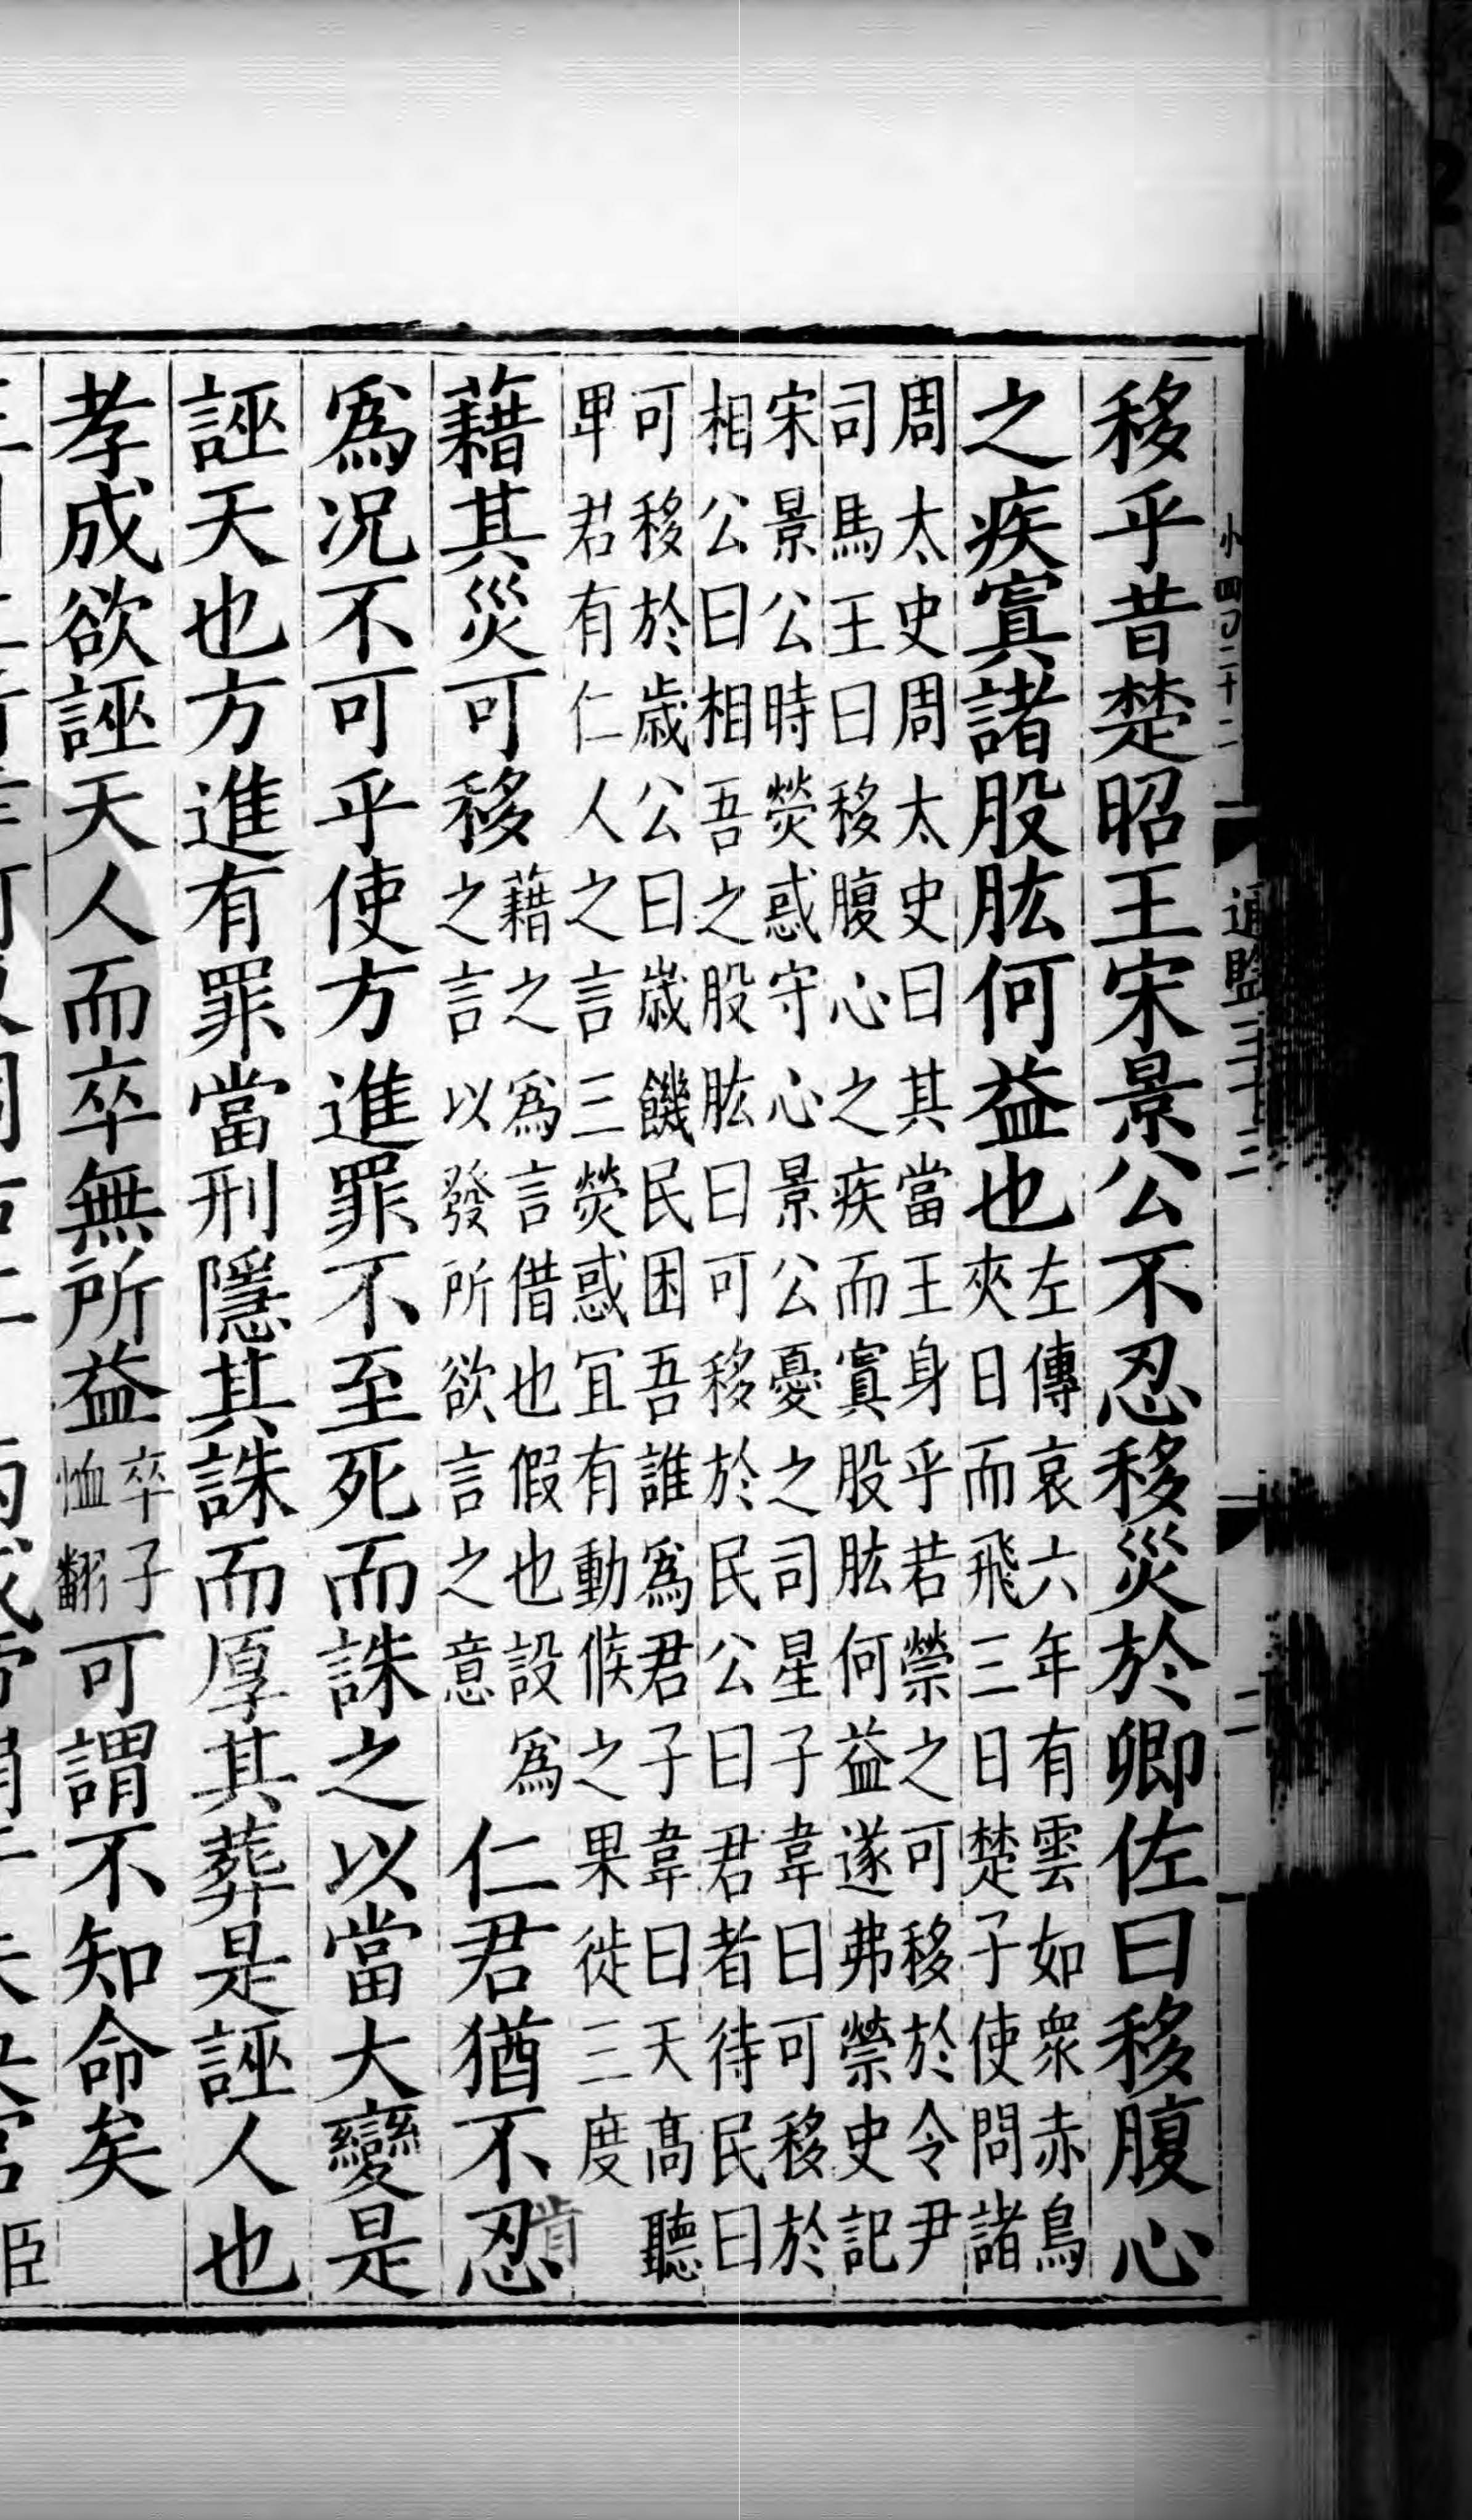 小四〇二十二
通鑑三十三
二
移乎昔楚昭王宋景公不忍移災於卿佐曰移腹心
之疾寘諸股肱何益也左傳哀六年有雲如衆赤鳥
夾日而飛三日楚子使問諸
周太史周太史曰其當王身乎若禜之可移於令尹
司馬王曰移腹心之疾而寘股肱何益遂弗禜史記
宋景公時熒惑守心景公憂之司星子韋曰可移於
相公曰相吾之股肱曰可移於民公曰君者待民曰
可移於歲公曰歲饑民困吾誰爲君子韋曰天高聽
卑君有仁人之言三熒惑宜有動候之果徙三度
藉其災可移藉之爲言借也假也設爲
之言以發所欲言之意
仁君猶不忍
爲況不可乎使方進罪不至死而誅之以當大變是
誣天也方進有罪當刑隱其誅而厚其葬是誣人也
孝成欲誣天人而卒無所益卒子
恤翻
可謂不知命矣
臣